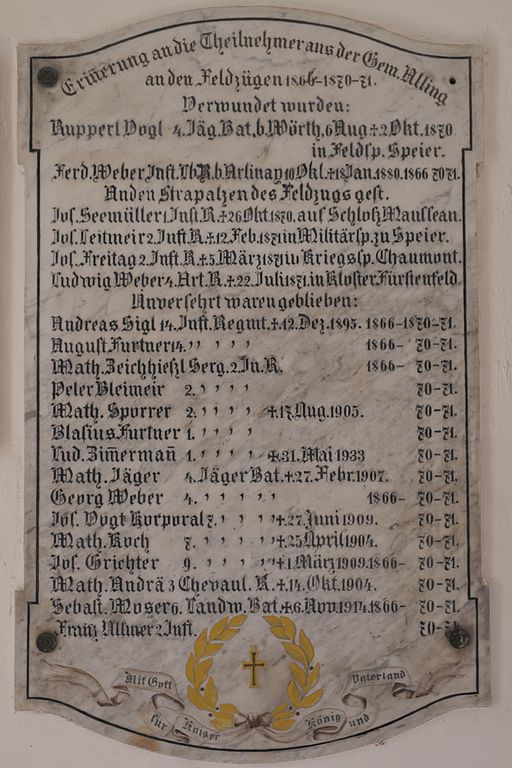 Erinnerung an die Theilnehmer aus der Gem. Alling
an den Feldzügen 1866-1870-71.
Verwundet wurden:
Ruppert Vogl 4. Jäg. Bat. b. Wörth, 6 Aug ✠ 2 Okt. 1870
in Feldsp. Speier.
Ferd. Weber Inft. Lb. R. b. Artinay 10 Okt. ✠ 18 Jan. 1880. 1866 70 71.
An den Strapatzen des Feldzugs gest.
Jos. Seemüller 1. Inft. R. ✠ 26 Okt. 1870. auf Schloß Mausseau.
Jos. Leitmeir 2. Inft. R. ✠ 12. Feb. 1871 in Militärsp. zu Speier.
Jos. Freitag 2. Inft. R. ✠ 5. März 1871 in Kriegssp. Chaumont.
Ludwig Weber 4. Art. R. ✠ 22. Juli 1871. in Kloster Fürstenfeld.
Unversehrt waren geblieben:
Andreas Sigl 14. Inft. Regmt. ✠ 12. Dez. 1895. 1866-1870-71.
August Furtner 14. " " " 1866- 70-71.
Math. Zeichhießl Serg. 2. In. R. 1866- 70-71.
Peter Bleimeir 2. " " " 70-71.
Math. Sporrer 2. " " " ✠ 17 Aug. 1905. 70-71.
Blasius Furtner 1. " " " 70-71.
Lud. Zim̄erman̄ 1. " " " ✠ 31. Mai 1933 70-71.
Math. Jäger 4. Jäger Bat. ✠ 27. Febr. 1907. 70-71.
Georg Weber 4. " " " 1866- 70-71.
Jos. Vogt Korporal 7. " " " ✠ 27. Juni 1909. 70-71.
Math. Koch 7. " " " ✠ 25 April 1904. 70-71.
Jos. Grichter 9. " " " ✠ 1 März 1909. 1866- 70-71.
Math. Andrä 3 Chevaul. R. ✠ 14. Okt. 1904. 70-71.
Sebast. Moser 6. Landw. Bat. ✠ 6. Nov. 1914. 1866- 70-71.
Franz Ullmer 2 Inft. 70-71
Mit Gott für Kaiser König und Vaterland